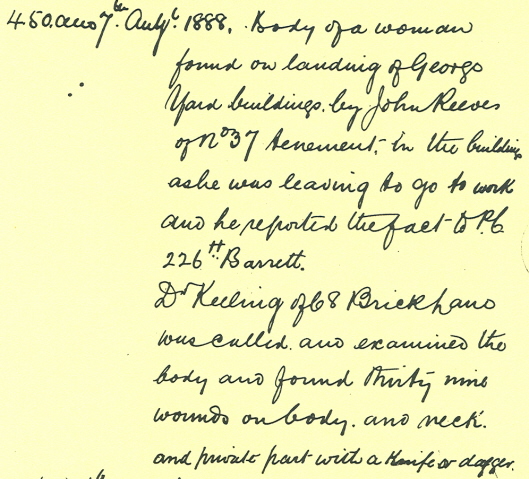 4.50. am 7th Augt. 1888. Body of a woman
found on landing of George
Yard buildings. by John Reeves
of No 37 tenement, in the building
as he was leaving to go to work
and he reported the fact to P.C
226 H. Barrett.
Dr Keeling of 68 Brick Lane
was called. and examined the
body and found thirty nine
wounds on body. and neck.
and private part with a knife or dagger.